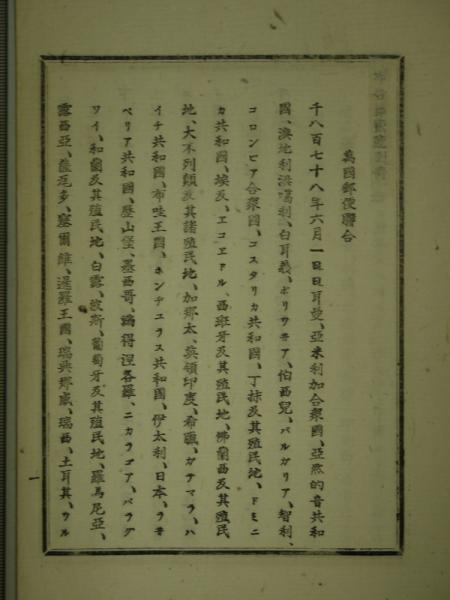 萬國郵便聯合
千八百七十八年六月一日日耳曼、亞米利加合衆國、亞然的音共和
國、澳地利洪噶利、白耳義、ボリヴィア、伯西兒、バルガリア、智利、
コロンビア合衆國、コスタリカ共和國、丁抹及其殖民地、ドミニ
カ共和國、埃及、エコエドル、西班牙及其殖民地、佛蘭西及其殖民
地、大不列顛及其諸殖民地、加那太、英領印度、希臘、ガテマラ、ハ
イチ共和國、布哇王國、ホンヂユラス共和國、伊太利、日本、ラキ
ベリア共和國、墨西哥、ニカラグア、パラグ
ワイ、和蘭及其殖民地、白露、波斯、葡萄牙及其殖民地、羅馬尼亞、
露西亞、薩瓦多、塞爾維、暹羅王國、瑞典那威、瑞西、土耳其、ウル
一